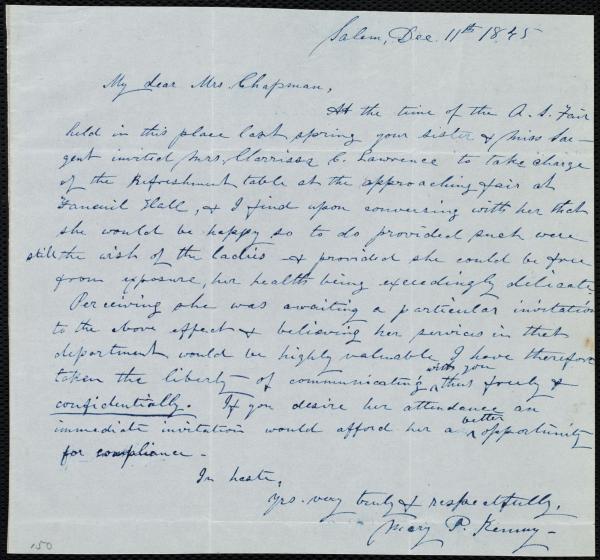 Salem, Dec. 11th 1845
My dear Mrs. Chapman,
At the time of the A. S. Fair
held in this place last spring your sister & Miss Sar-
gent invited Mrs. Clarrissa C. Lawrence to take charge
of the Refreshment table at the approaching Fair at
Faneuil Hall, & I find upon conversing with her that
she would be happy so to do provided such were
still the wish of the ladies & provided she could be free
from exposure, her health being exceedingly delicate.
Perceiving she was awaiting a particular invitation
to the above effect & believing her services in that
department would be highly valuable, I have therefore
taken the liberty of communicating with you thus freely &
confidentially. If you desire her attendance an
immediate invitation would afford her a better opportunity
for compliance -
In haste,
Yrs. very truly & respectfully,
Mary P. Kenny -
150